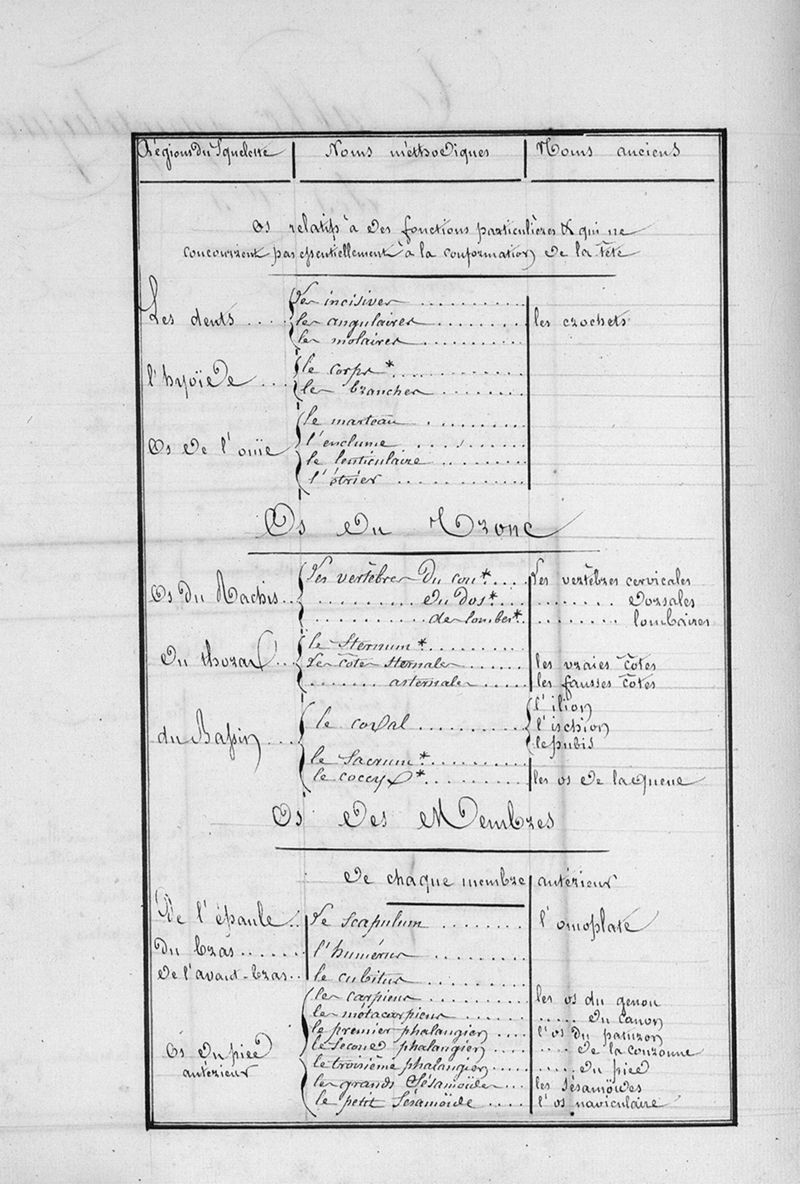 Régions du Squelette | Noms méthodiques | Noms anciens
Os relatifs à des fonctions particulières & qui ne
concourrent pas essentiellement à la conformation de la tête
Les dents .... Les incisives ..........
les angulaires ........ les crochets
les molaires .........
l'hyoïde ... le corps * ...........
les branches ........
Os de l'ouïe le marteau .........
l'enclume .........
le lenticulaire .......
l'étrier ...........
Os du Tronc
Os du Rachis.. Les vertèbres du cou*.... Les vertèbres cervicales
.......... du dos*... ........ dorsales
.......... de lombes*. ........ lombaires
Du thorax... le Sternum*.........
Les côtes sternales...... les vraies côtes
....... asternales..... les fausses côtes
du Bassin ... le coxal .......... l'ilion
l'ischion
le pubis
le Sacrum*.........
le coccyx*......... les os de la queue
Os des Membres
De chaque membre antérieur
De l'épaule.. Le Scapulum ........ l'omoplate
Du bras ...... l'humérus .........
De l'avant-bras.. le cubitus .........
Os du pied
antérieur
les carpiens ........ les os du genou
les métacarpiens ...... ..... du canon
le premier phalangien .... l'os du paturon
le second phalangien .... .... de la couronne
le troisième phalangien.... ..... du pied
les grands Sésamoïdes ... les Sésamoïdes
le petit Sésamoïde .... l'os naviculaire